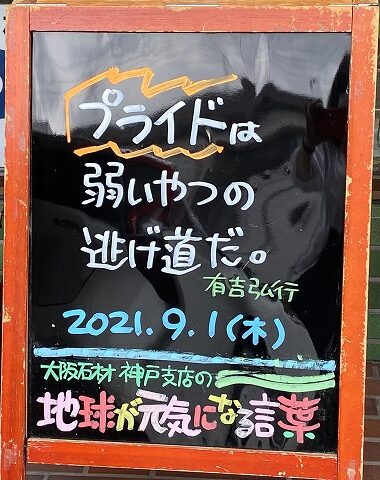 プライドは
弱いやつの
逃げ道だ。
有吉弘行
2021.9.1(木)
大阪石材 神戸支店の
地球が元気になる言葉